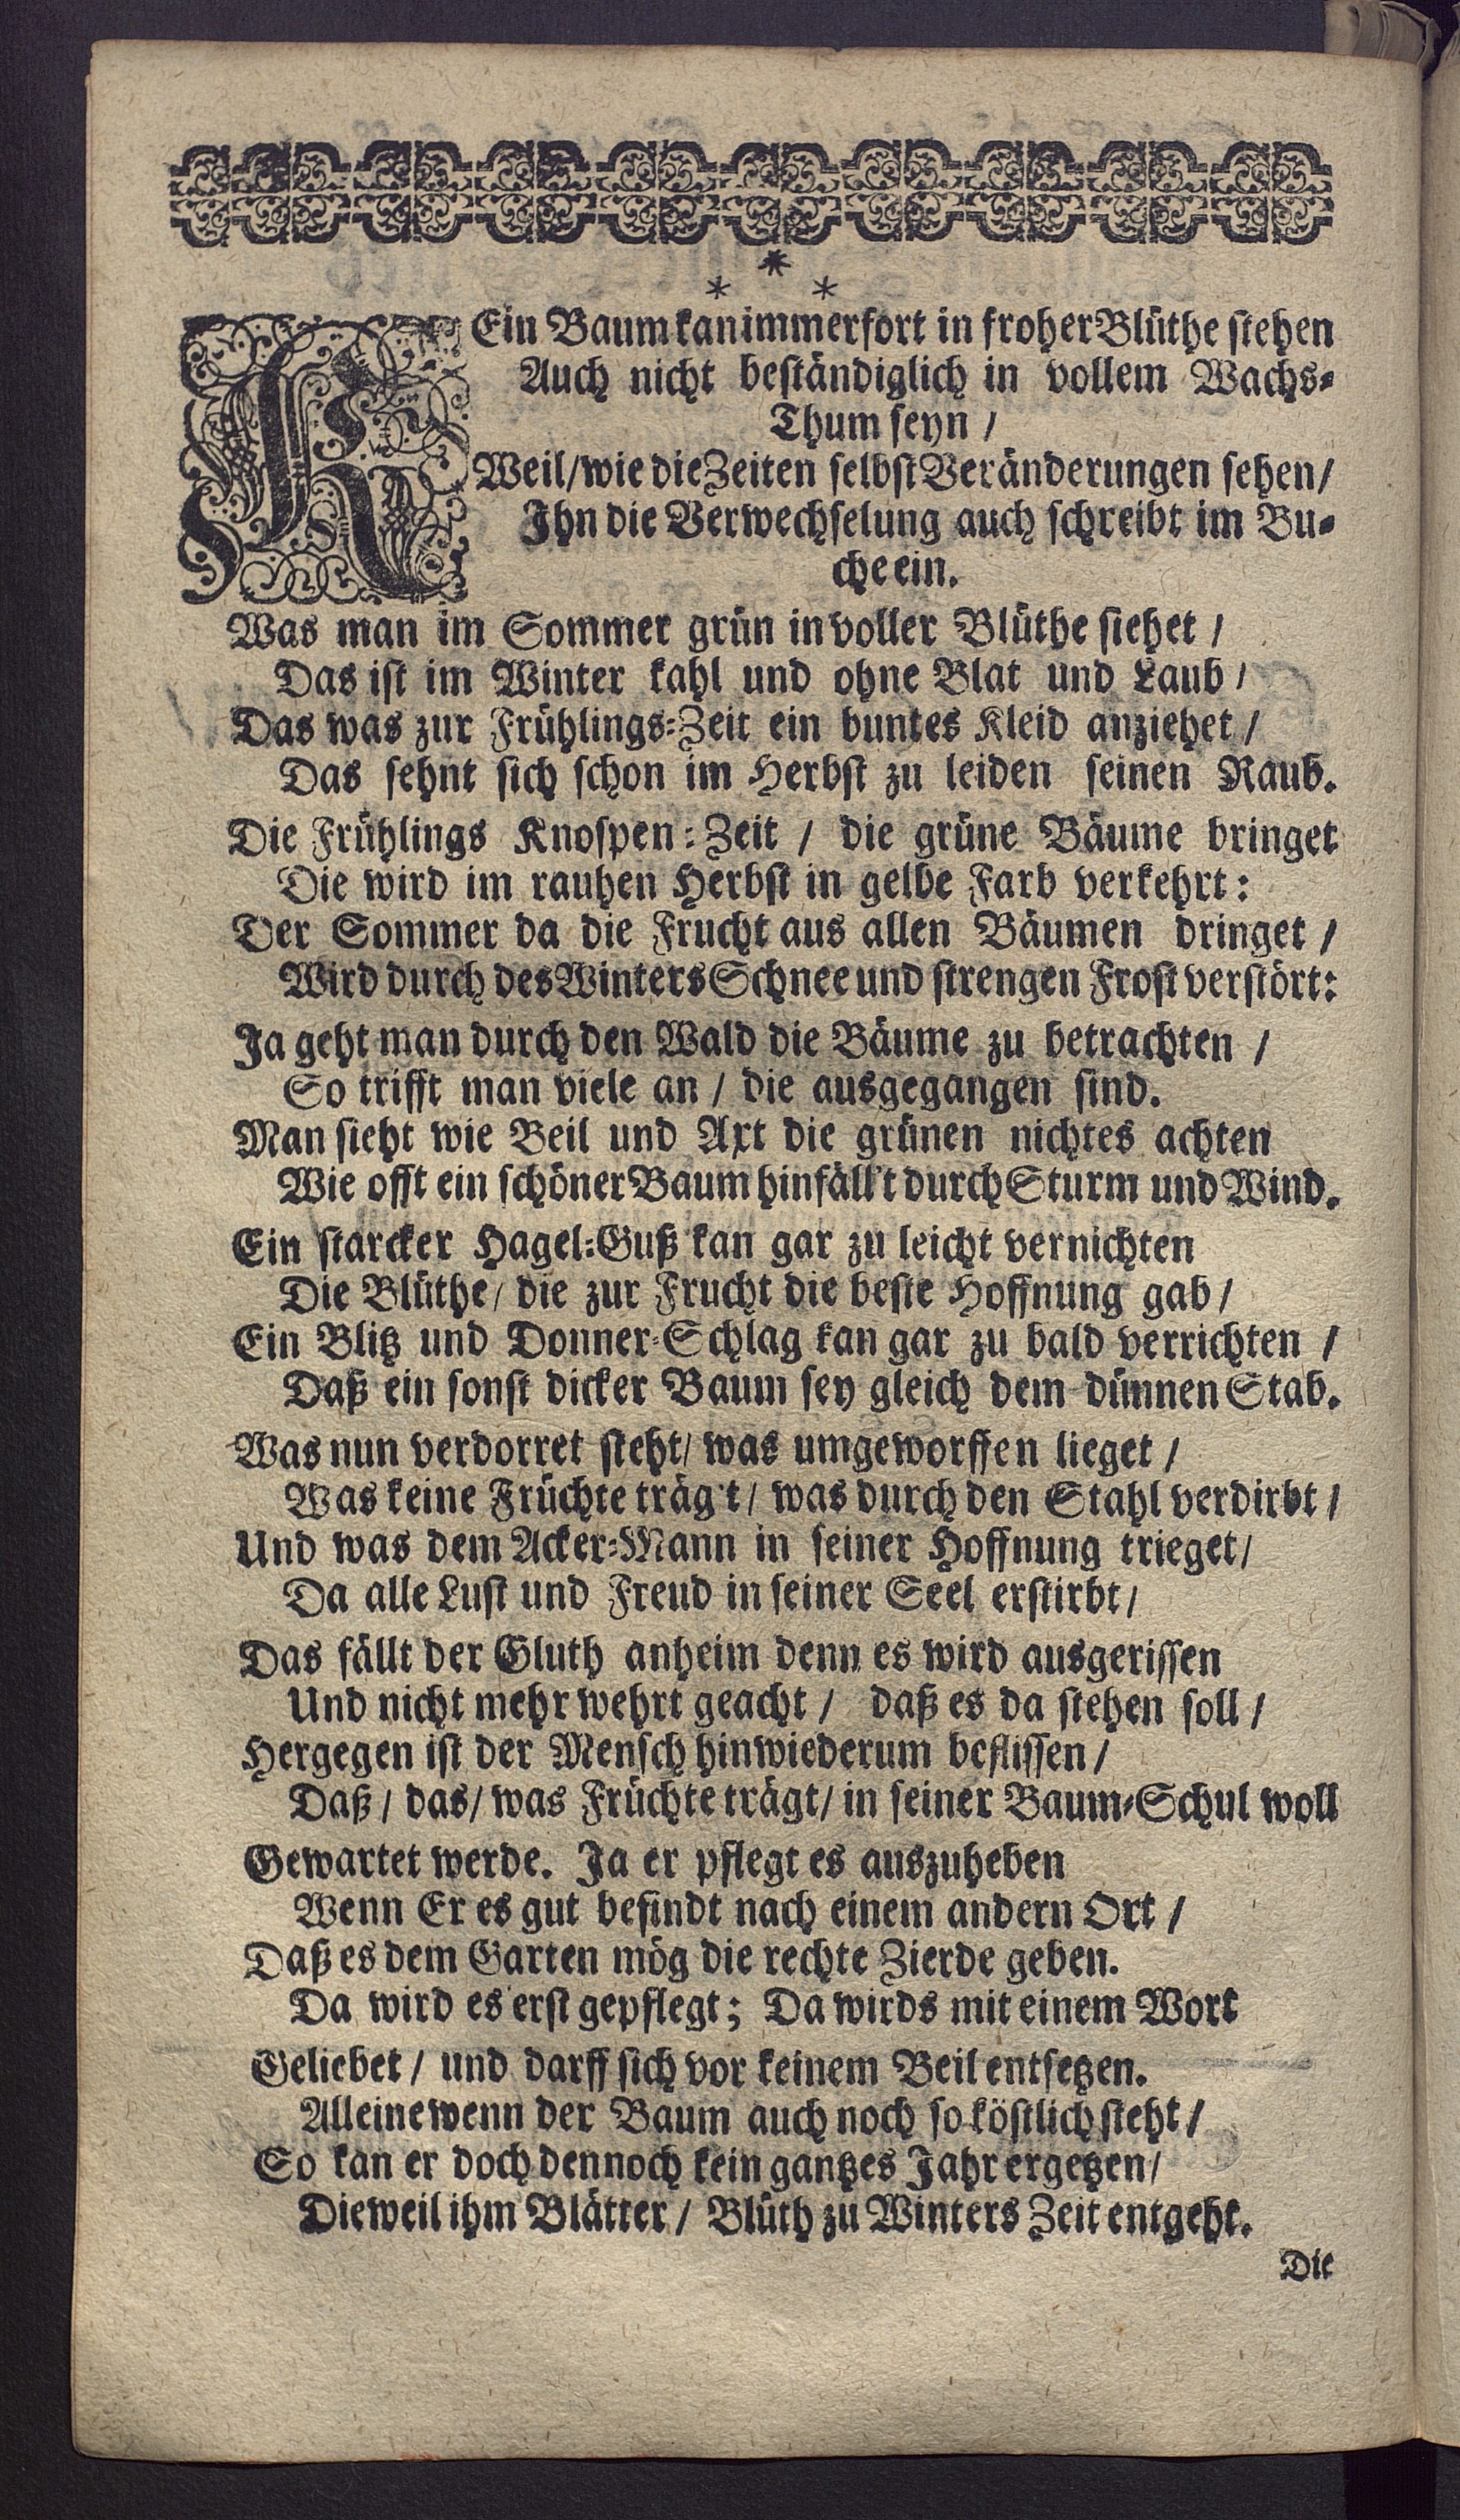 *
* *
KEin Baum kan immerfort in froher Blüthe stehen
Auch nicht beständiglich in vollem Wachs-
Thum seyn /
Weil / wie die Zeiten selbst Veränderungen sehen /
Ihn die Verwechselung auch schreibt im Bu-
che ein.
Was man im Sommer grün in voller Blüthe siehet /
Das ist im Winter kahl und ohne Blat und Laub /
Das was zur Frühlings-Zeit ein buntes Kleid anziehet /
Das sehnt sich schon im Herbst zu leiden seinen Raub.
Die Frühlings Knospen-Zeit / die grüne Bäume bringet
Die wird im rauhen Herbst in gelbe Farb verkehrt:
Der Sommer da die Frucht aus allen Bäumen dringet /
Wird durch des Winters Schnee und strengen Frost verstört:
Ja geht man durch den Wald die Bäume zu betrachten /
So trifft man viele an / die ausgegangen sind.
Man sieht wie Beil und Axt die grünen nichtes achten
Wie offt ein schöner Baum hinfäll't durch Sturm und Wind.
Ein starcker Hagel-Guß kan gar zu leicht vernichten
Die Blüthe / die zur Frucht die beste Hoffnung gab /
Ein Blitz und Donner-Schlag kan gar zu bald verrichten /
Daß ein sonst dicker Baum sey gleich dem dünnen Stab.
Was nun verdorret steht / was umgeworffen lieget /
Was keine Früchte träg't / was durch den Stahl verdirbt /
Und was dem Acker-Mann in seiner Hoffnung trieget /
Da alle Lust und Freud in seiner Seel erstirbt /
Das fällt der Gluth anheim denn es wird ausgerissen
Und nicht mehr wehrt geacht / daß es da stehen soll /
Hergegen ist der Mensch hinwiederum beflissen /
Daß / das / was Früchte trägt / in seiner Baum-Schul woll
Gewartet werde. Ja er pflegt es auszuheben
Wenn Er es gut befindt nach einem andern Ort /
Daß es dem Garten mög die rechte Zierde geben.
Da wird es erst gepflegt; Da wirds mit einem Wort
Geliebet / und darff sich vor keinem Beil entsetzen.
Alleine wenn der Baum auch noch so köstlich steht /
So kan er doch dennoch kein gantzes Jahr ergetzen /
Dieweil ihm Blätter / Blüth zu Winters Zeit entgeht.
Die